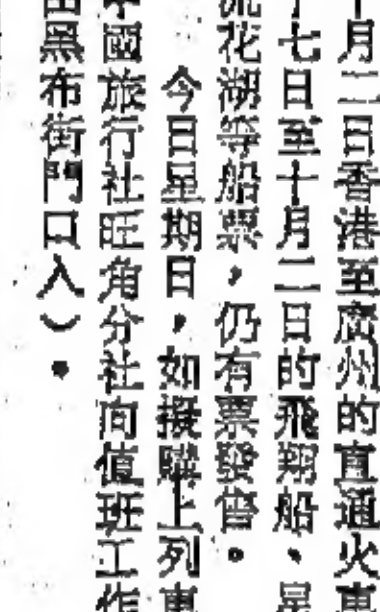 月二日香港至廣州的直通火車
七日至十月二日的飛翔船、星
流花湖等船票，仍有票發售。
今日星期日，如擬購上列車
中國旅行社旺角分社向值班工作
由黑布街門口入）。